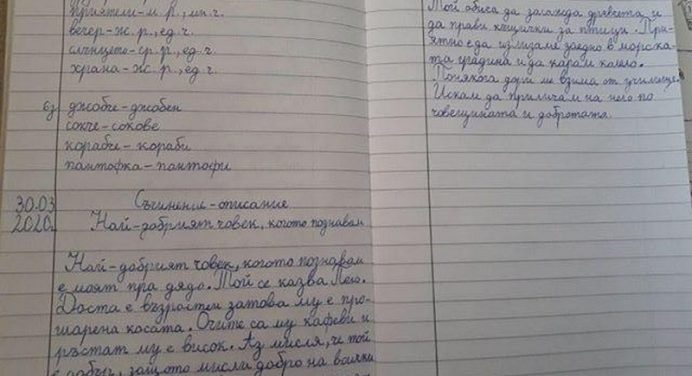 приятели-м.р., мн.ч.
вечер-ж.р., ед.ч.
слънцето-ср.р., ед.ч.
храна-ж.р., ед.ч.
б) джобче-джобен
сокче-сокове
корабче-кораби
пантофка-пантофи
30.03
2020г.
Съчинение-описание
Най-добрият човек, когото познавам
Най-добрият човек, когото познавам
е моят пра дядо. Той се казва Лечо.
Доста е възрастен затова му е про-
шарена косата. Очите са му кафеви и
ръстат му е висок. Аз мисля, че той
е добър, защото мисли добро на всички
Той обича да засажда дръвчета, и
да прави къщички за птици. При-
ятно е да излизаме заедно в морска-
та градина и да карам колело.
Понякога дори ме взима от училище.
Искам да приличам на него по
човещината и добротата.